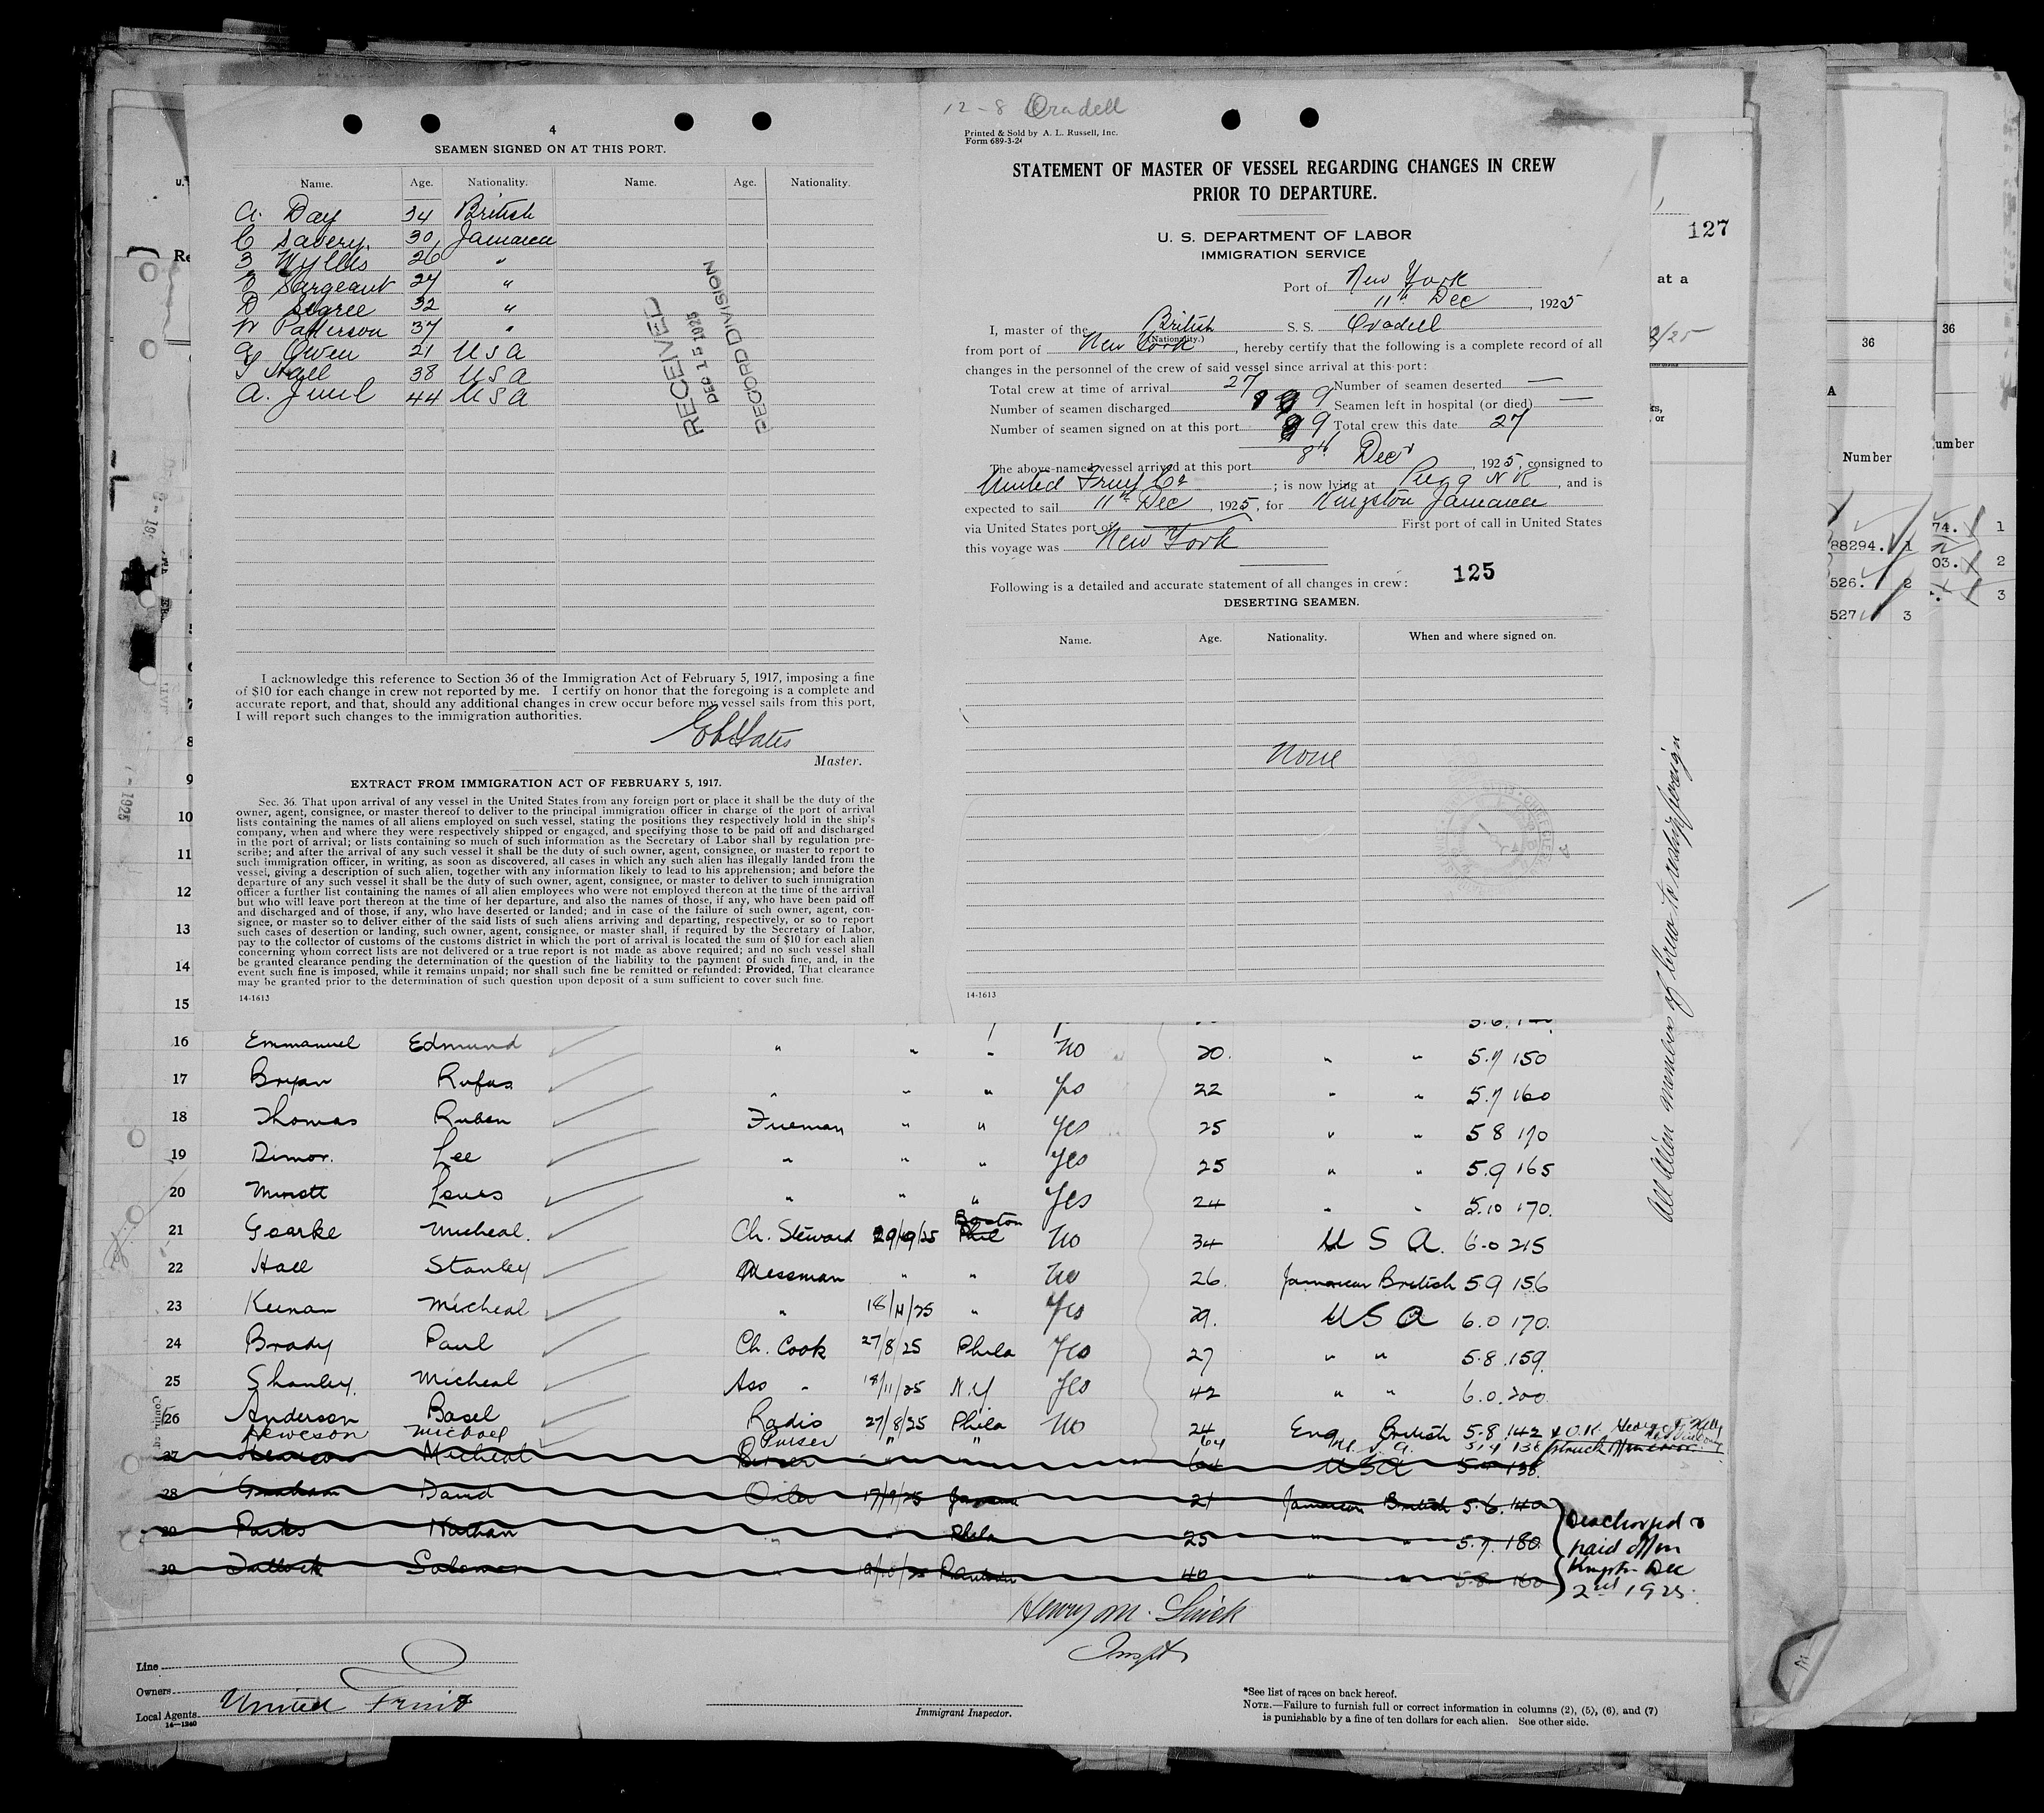 4
SEAMEN SIGNED ON AT THIS PORT.
Name. Age. Nationality. Name. Age. Nationality.
A. Day 34 British
C Savery. 30 Jamaica
Z Wyllis 26 "
Sargeant 27 "
D Segree 32 "
W Patterson 37 "
G Owen 21 U S A
Hall 38 U S A
A. 44 U S A
RECEIVED
DEC 15 1925
RECORD DIVISION
I acknowledge this reference to Section 36 of the Immigration Act of February 5, 1917, imposing a fine
of $10 for each change in crew not reported by me. I certify on honor that the foregoing is a complete and
accurate report, and that, should any additional changes in crew occur before my vessel sails from this port,
I will report such changes to the immigration authorities.
Master.
EXTRACT FROM IMMIGRATION ACT OF FEBRUARY 5, 1917.
Sec. 36. That upon arrival of any vessel in the United States from any foreign port or place it shall be the duty of the
owner, agent, consignee, or master thereof to deliver to the principal immigration officer in charge of the port of arrival
lists containing the names of all aliens employed on such vessel, stating the positions they respectively hold in the ship's
company, when and where they were respectively shipped or engaged, and specifying those to be paid off and discharged
in the port of arrival; or lists containing so much of such information as the Secretary of Labor shall by regulation pre-
scribe; and after the arrival of any such vessel it shall be the duty of such owner, agent, consignee, or master to report to
such immigration officer, in writing, as soon as discovered, all cases in which any such alien has illegally landed from the
vessel, giving a description of such alien, together with any information likely to lead to his apprehension; and before the
departure of any such vessel it shall be the duty of such owner, agent, consignee, or master to deliver to such immigration
officer a further list containing the names of all alien employees who were not employed thereon at the time of the arrival
but who will leave port thereon at the time of her departure, and also the names of those, if any, who have been paid off
and discharged and of those, if any, who have deserted or landed; and in case of the failure of such owner, agent, con-
signee, or master so to deliver either of the said lists of such aliens arriving and departing, respectively, or so to report
such cases of desertion or landing, such owner, agent, consignee, or master, shall, if required by the Secretary of Labor,
pay to the collector of customs of the customs district in which the port of arrival is located the sum of $10 for each alien
concerning whom correct lists are not delivered or a true report is not made as above required; and no such vessel shall
be granted clearance pending the determination of the question of the liability to the payment of such fine, and, in the
event such fine is imposed, while it remains unpaid; nor shall such fine be remitted or refunded: Provided, That clearance
may be granted prior to the determination of such question upon deposit of a sum sufficient to cover such fine.
14-1613
12-8 Oradell
Printed & Sold by A. L. Russell, Inc.
Form 689-3-24
STATEMENT OF MASTER OF VESSEL REGARDING CHANGES IN CREW
PRIOR TO DEPARTURE.
U. S. DEPARTMENT OF LABOR
IMMIGRATION SERVICE
Port of New York
11th Dec, 1925
I, master of the British S. S. Oradell
(Nationality.)
from port of New York, hereby certify that the following is a complete record of all
changes in the personnel of the crew of said vessel since arrival at this port:
Total crew at time of arrival 27 Number of seamen deserted —
Number of seamen discharged 9 Seamen left in hospital (or died) —
Number of seamen signed on at this port 9 Total crew this date 27
The above-named vessel arrived at this port 8th Decr, 1925, consigned to
United Fruit Co; is now lying at Pier 9 N R, and is
expected to sail 11th Dec, 1925, for Kingston Jamaica
via United States port of First port of call in United States
this voyage was New York
125
Following is a detailed and accurate statement of all changes in crew:
DESERTING SEAMEN.
Name. Age. Nationality. When and where signed on.
None
14-1613
127
at a
36
36
A
Number
umber
74. 1
88294. 1
03. 2
526. 2
3
527 3
All Alien members of Crew to reship foreign
8
9
10
11
12
13
14
15
16 Emmanuel Edmund " " " No 20. " " 5.7 150
17 Bryan Rufus " " " Yes 22 " " 5.7 160
18 Thomas Ruben Fireman " " Yes 25 " " 5 8 170
19 Dimor. Lee " " " Yes 25 " " 5.9 165
20 Louis " " " Yes 24 " " 5.10 170.
21 Gearke Micheal. Ch. Steward 29/9/25 Boston Phil No 34 U S A. 6-0 215
22 Hall Stanley Messman " " No 26. Jamaican British 5 9 156
23 Keenan Micheal " 18/11/25 " Yes 29. U S A 6.0 170.
24 Brady Paul Ch. Cook 27/8/25 Phila Yes 27 " " 5.8.159.
25 Shanley. Micheal Ass " 18/11/25 N.Y Yes 42 " " 6.0.200
26 Anderson Basel Radio 27/8/25 Phila No 24 Eng British 5-8.142
Heweson Michael Purser " " 64 U. S. A. 138
27 Micheal Purser " " 64 U S A 138.
28 Graham David Oiler 17/9/25 21 Jamaican British 5.6.140
29 Parks Nathan " " Phila 25 " " 5.7.180
30 Solomon " 40 " " 5.8 160
Discharged &
paid off in
Kingston Dec
2nd 1925.
Henry M.
Inspt
Line
Owners
Local Agents United Fruit
14-1240
Immigrant Inspector.
*See list of races on back hereof.
NOTE.—Failure to furnish full or correct information in columns (2), (5), (6), and (7)
is punishable by a fine of ten dollars for each alien. See other side.